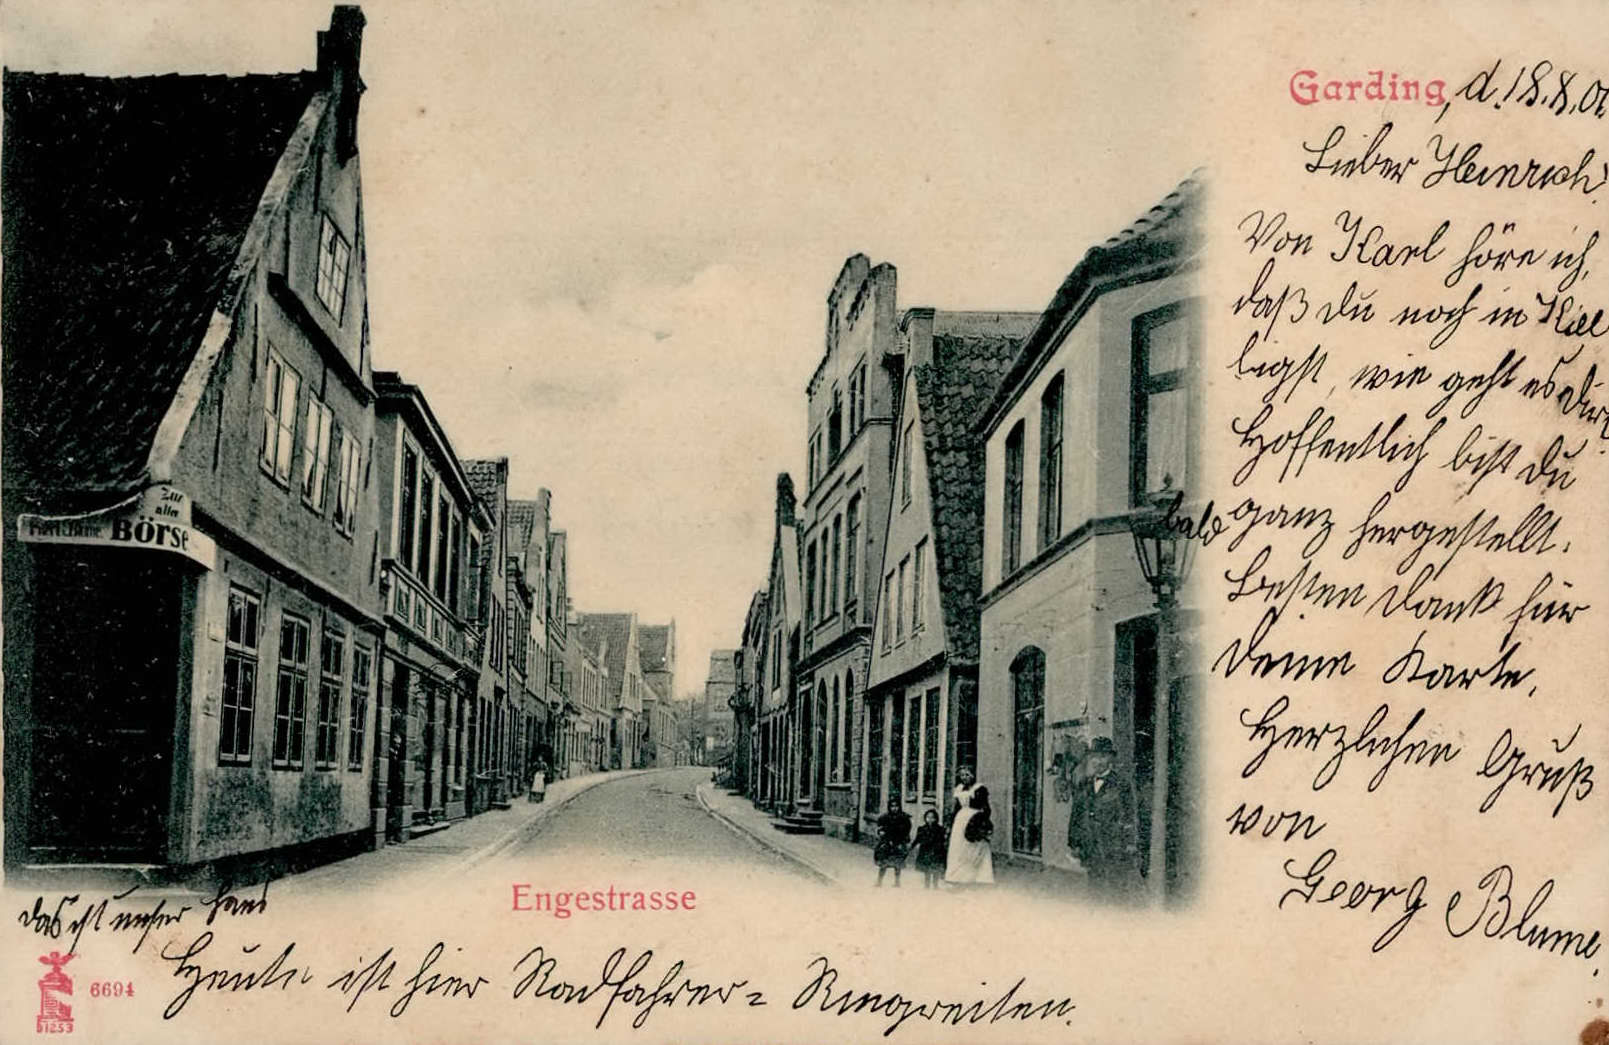 Garding, d. 18.8.01.
Lieber Heinrich!
Von Karl höre ich,
daß du noch in Kiel
liegst, wie geht es dir?
Hoffentlich bist du
bald ganz hergestellt.
Besten Dank für
deine Karte.
Herzlichen Gruß
von
Georg Blume.
Zur
alten
BÖRSE
Engestrasse
das ist unser Haus
Heute ist hier Radfahrer-Ringreiten.
6694